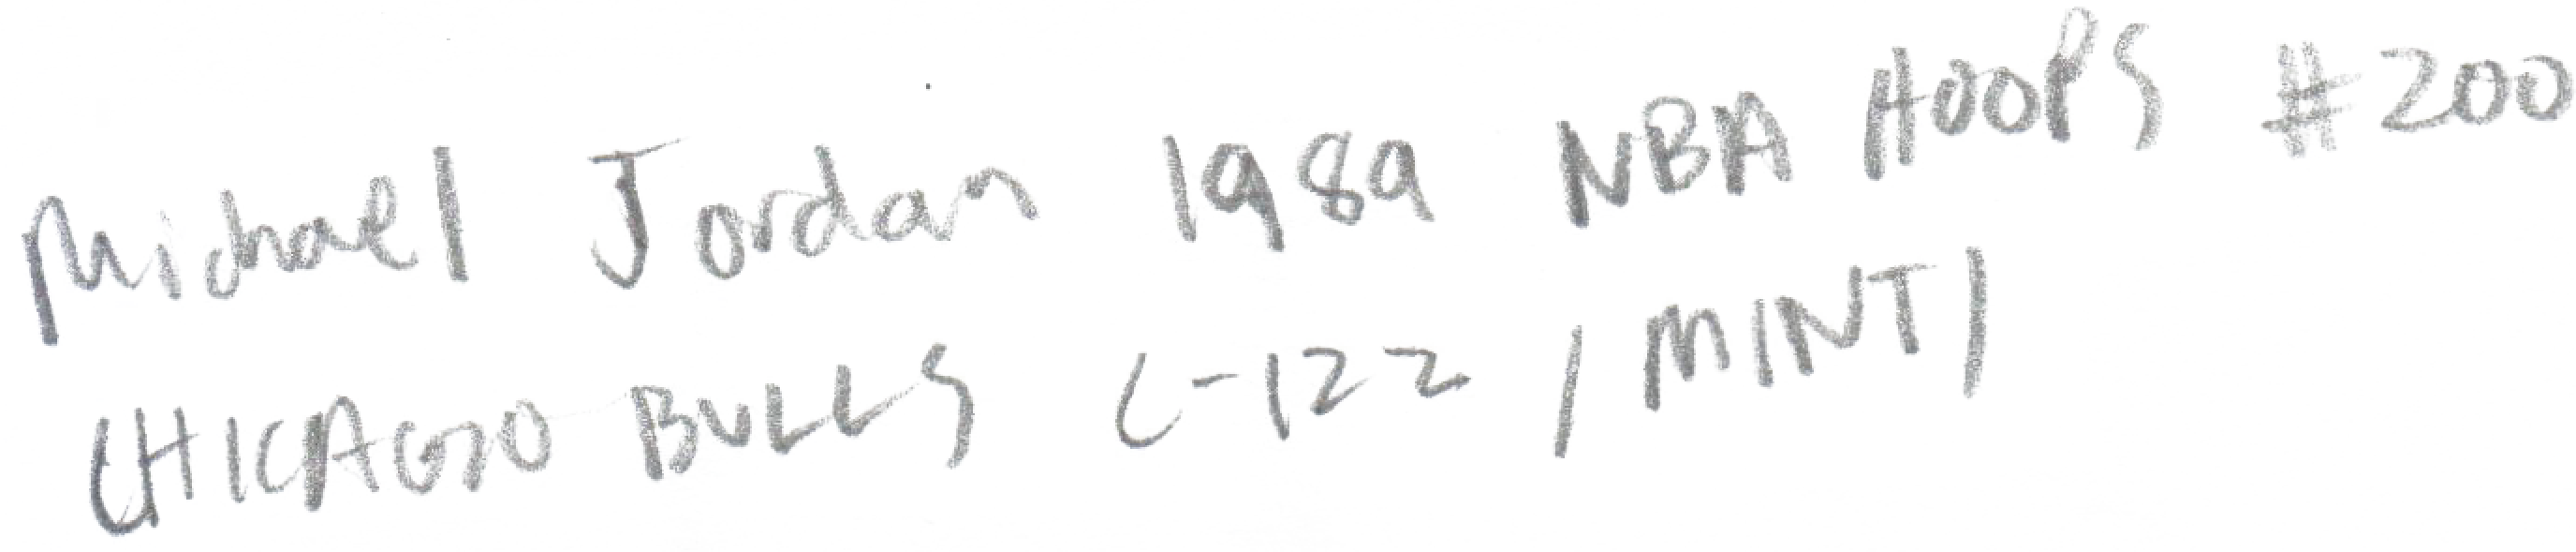 Michael Jordan 1989 NBA HOOPS #200
CHICAGO BULLS C-122 / MINT /